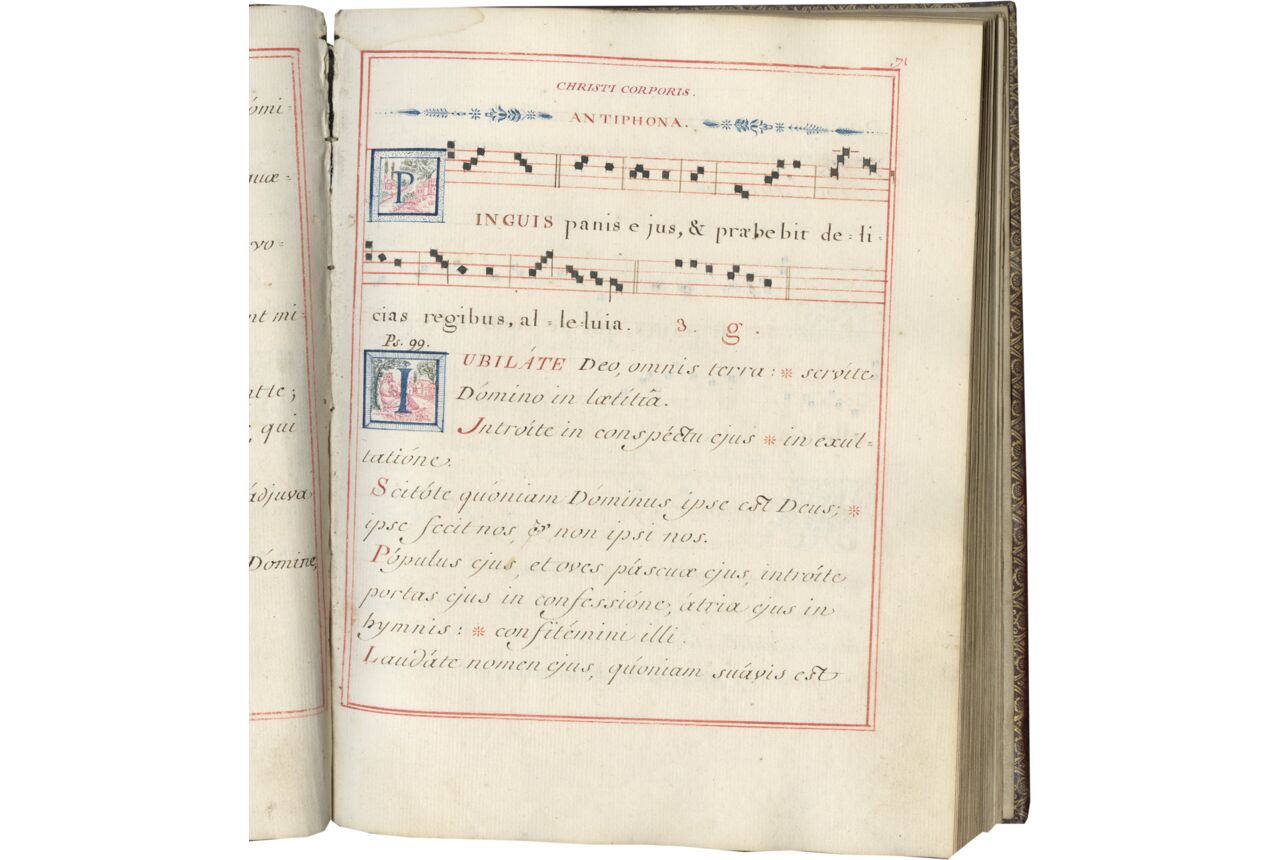 ómi-
uæ-
vo-
nt mi-
tte;
, qui
ádjuva
Dómine,
71
CHRISTI CORPORIS.
ANTIPHONA.
PINGUIS panis ejus, & præbebit de-li-
cias regibus, al-le-luia. 3. g.
Ps. 99.
IUBILÁTE Deo, omnis terra: * servite
Dómino in lætítiâ.
Introíte in conspéctu ejus * in exul-
tatióne.
Scitóte quóniam Dóminus ipse est Deus; *
ipse fecit nos, & non ipsi nos.
Pópulus ejus, et oves páscuæ ejus, introíte
portas ejus in confessióne, átria ejus in
hymnis: * confitémini illi.
Laudáte nomen ejus, quóniam suávis est